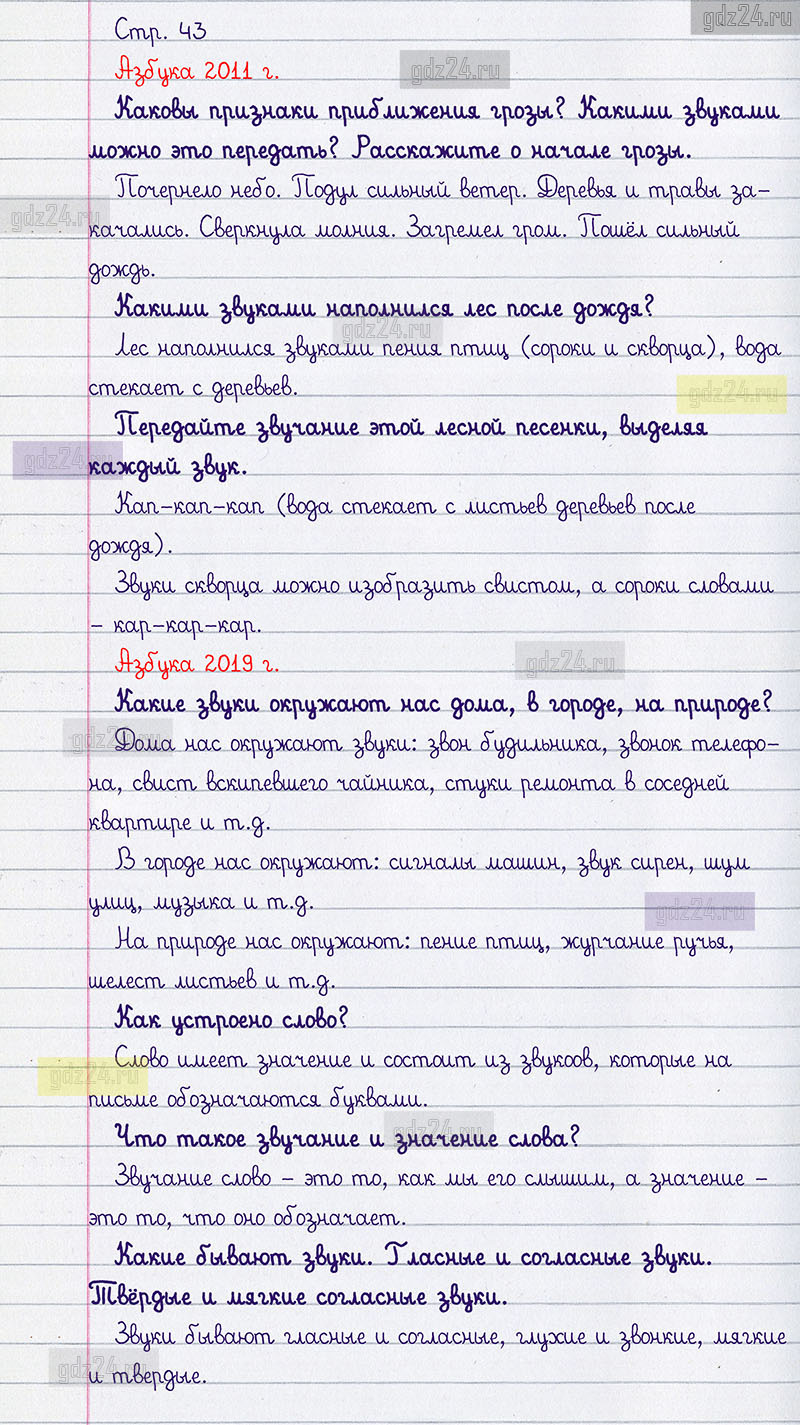 Стр. 43
Азбука 2011 г.
Каковы признаки приближения грозы? Какими звуками
можно это передать? Расскажите о начале грозы.
Почернело небо. Подул сильный ветер. Деревья и травы за-
качались. Сверкнула молния. Загремел гром. Пошёл сильный
дождь.
Какими звуками наполнился лес после дождя?
Лес наполнился звуками пения птиц (сороки и скворца), вода
стекает с деревьев.
Передайте звучание этой лесной песенки, выделяя
каждый звук.
Кап-кап-кап (вода стекает с листьев деревьев после
дождя).
Звуки скворца можно изобразить свистом, а сороки словами
- кар-кар-кар.
Азбука 2019 г.
Какие звуки окружают нас дома, в городе, на природе?
Дома нас окружают звуки: звон будильника, звонок телефо-
на, свист вскипевшего чайника, стуки ремонта в соседней
квартире и т.д.
В городе нас окружают: сигналы машин, звук сирен, шум
улиц, музыка и т.д.
На природе нас окружают: пение птиц, журчание ручья,
шелест листьев и т.д.
Как устроено слово?
Слово имеет значение и состоит из звукоов, которые на
письме обозначаются буквами.
Что такое звучание и значение слова?
Звучание слово - это то, как мы его слышим, а значение -
это то, что оно обозначает.
Какие бывают звуки. Гласные и согласные звуки.
Твёрдые и мягкие согласные звуки.
Звуки бывают гласные и согласные, глухие и звонкие, мягкие
и твердые.
gdz24.ru
gdz24.ru
gdz24.ru
gdz24.ru
gdz24.ru
gdz24.ru
gdz24.ru
gdz24.ru
gdz24.ru
gdz24.ru
gdz24.ru
gdz24.ru